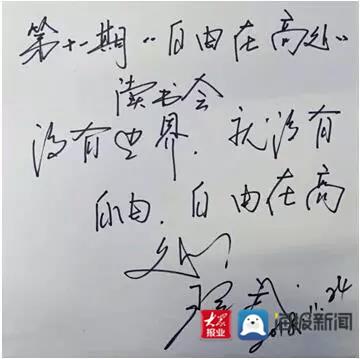 第十一期“自由在高处”
读书会
没有世界，就没有
自由．自由在高
处！
2018.11.24
大众报业
海报新闻